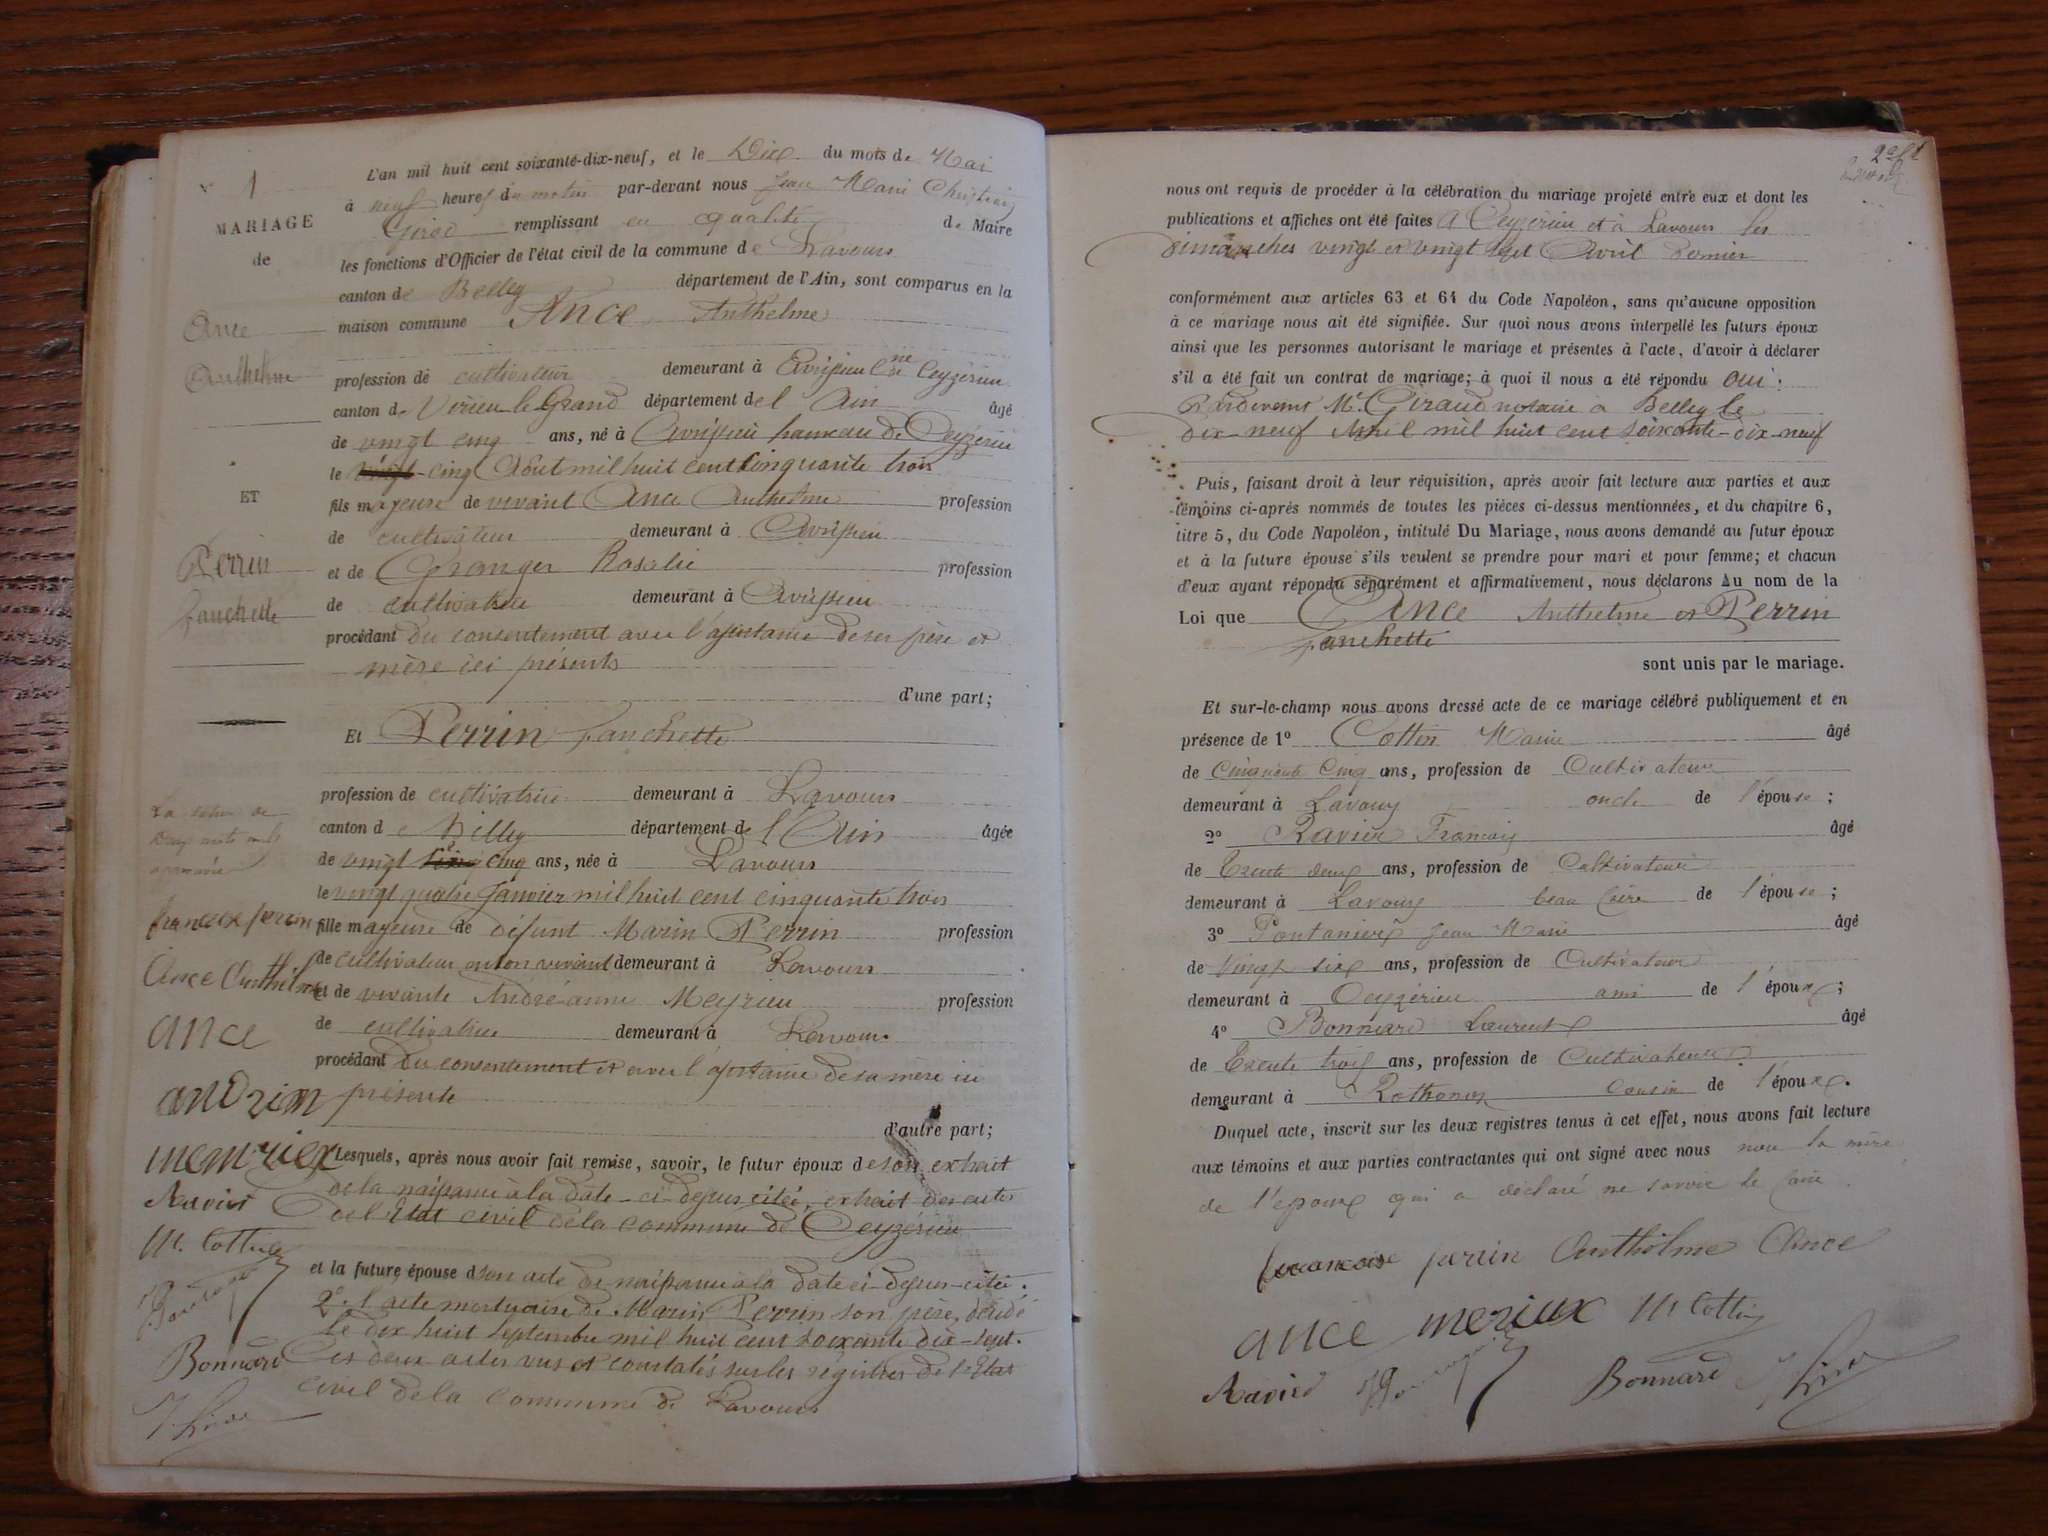 1
MARIAGE
de
Ance
Anthelme
ET
Perrin
fanchette
La rature de
deux mots nuls
approuvée
francoise perrin
Ance Anthelme
ance
andrian
memriex
Ravier
M. Cottin
Bonnard
L'an mil huit cent soixante-dix-neuf, et le Dix du mois de Mai
à neuf heures du matin par-devant nous Jean Marie Christin
Girod remplissant en qualité de Maire
les fonctions d'Officier de l'état civil de la commune de Lavours
canton de Belley département de l'Ain, sont comparus en la
maison commune Ance Anthelme
profession de cultivateur demeurant à Avrissieu Cne de Ceyzérieu
canton de Virieu le Grand département de l'Ain âgé
de vingt cinq ans, né à Avrissieu hameau de Ceyzérieu
le vingt-cinq Août mil huit cent cinquante trois
fils majeure de vivant Ance Anthelme profession
de cultivateur demeurant à Avrissieu
et de Granger Rosalie profession
de cultivatrice demeurant à Avrissieu
procédant du consentement avec l'assistance de ses père et
mère ici présents
d'une part;
Et Perrin fanchette
profession de cultivatrice demeurant à Lavours
canton de Belley département de l'Ain âgée
de vingt six cinq ans, née à Lavours
le vingt quatre Janvier mil huit cent cinquante trois
fille majeure de défunt Marin Perrin profession
de cultivateur en son vivant demeurant à Lavours
et de vivante Andréanne Meyrieu profession
de cultivatrice demeurant à Lavours
procédant du consentement et avec l'assistance de sa mère ici
présente
d'autre part;
Lesquels, après nous avoir fait remise, savoir, le futur époux de son extrait
de la naissance à la date ci-dessus citée, extrait des actes
de l'état civil de la commune de Ceyzérieu
et la future épouse d son acte de naissance à la date ci-dessus-citée.
2°. l'acte mortuaire de Marin Perrin son père, décédé
le dix huit Septembre mil huit cent soixante dix-sept.
Ces deux actes vus et constatés sur les régistres de l'Etat
civil de la commune de Lavours
2
nous ont requis de procéder à la célébration du mariage projeté entre eux et dont les
publications et affiches ont été faites A Ceyzérieu et à Lavours les
dimanches vingt et vingt sept Avril dernier
conformément aux articles 63 et 64 du Code Napoléon, sans qu'aucune opposition
à ce mariage nous ait été signifiée. Sur quoi nous avons interpellé les futurs époux
ainsi que les personnes autorisant le mariage et présentes à l'acte, d'avoir à déclarer
s'il a été fait un contrat de mariage; à quoi il nous a été répondu oui.
Pardevant Me. Giraud notaire à Belley le
dix-neuf Avril mil huit cent soixante-dix-neuf
Puis, faisant droit à leur réquisition, après avoir fait lecture aux parties et aux
témoins ci-après nommés de toutes les pièces ci-dessus mentionnées, et du chapitre 6,
titre 5, du Code Napoléon, intitulé Du Mariage, nous avons demandé au futur époux
et à la future épouse s'ils veulent se prendre pour mari et pour femme; et chacun
d'eux ayant répondu séparément et affirmativement, nous déclarons Au nom de la
Loi que Ance Anthelme et Perrin
fanchette
sont unis par le mariage.
Et sur-le-champ nous avons dressé acte de ce mariage célébré publiquement et en
présence de 1° Cottin Marin âgé
de Cinquante Cinq ans, profession de Cultivateur
demeurant à Lavours oncle de l'épouse;
2° Ravier François âgé
de Trente deux ans, profession de Cultivateur
demeurant à Lavours beau frère de l'épouse;
3° Pontanier Jean Marie âgé
de Vingt six ans, profession de Cultivateur
demeurant à Ceyzérieu ami de l'époux;
4° Bonnard Laurent âgé
de Trente trois ans, profession de Cultivateur
demeurant à Rothonod cousin de l'époux.
Duquel acte, inscrit sur les deux registres tenus à cet effet, nous avons fait lecture
aux témoins et aux parties contractantes qui ont signé avec nous non la mère
de l'époux qui a déclaré ne savoir le faire.
francoise perrin Anthelme Ance
ance meriaux M Cottin
Ravier Bonnard